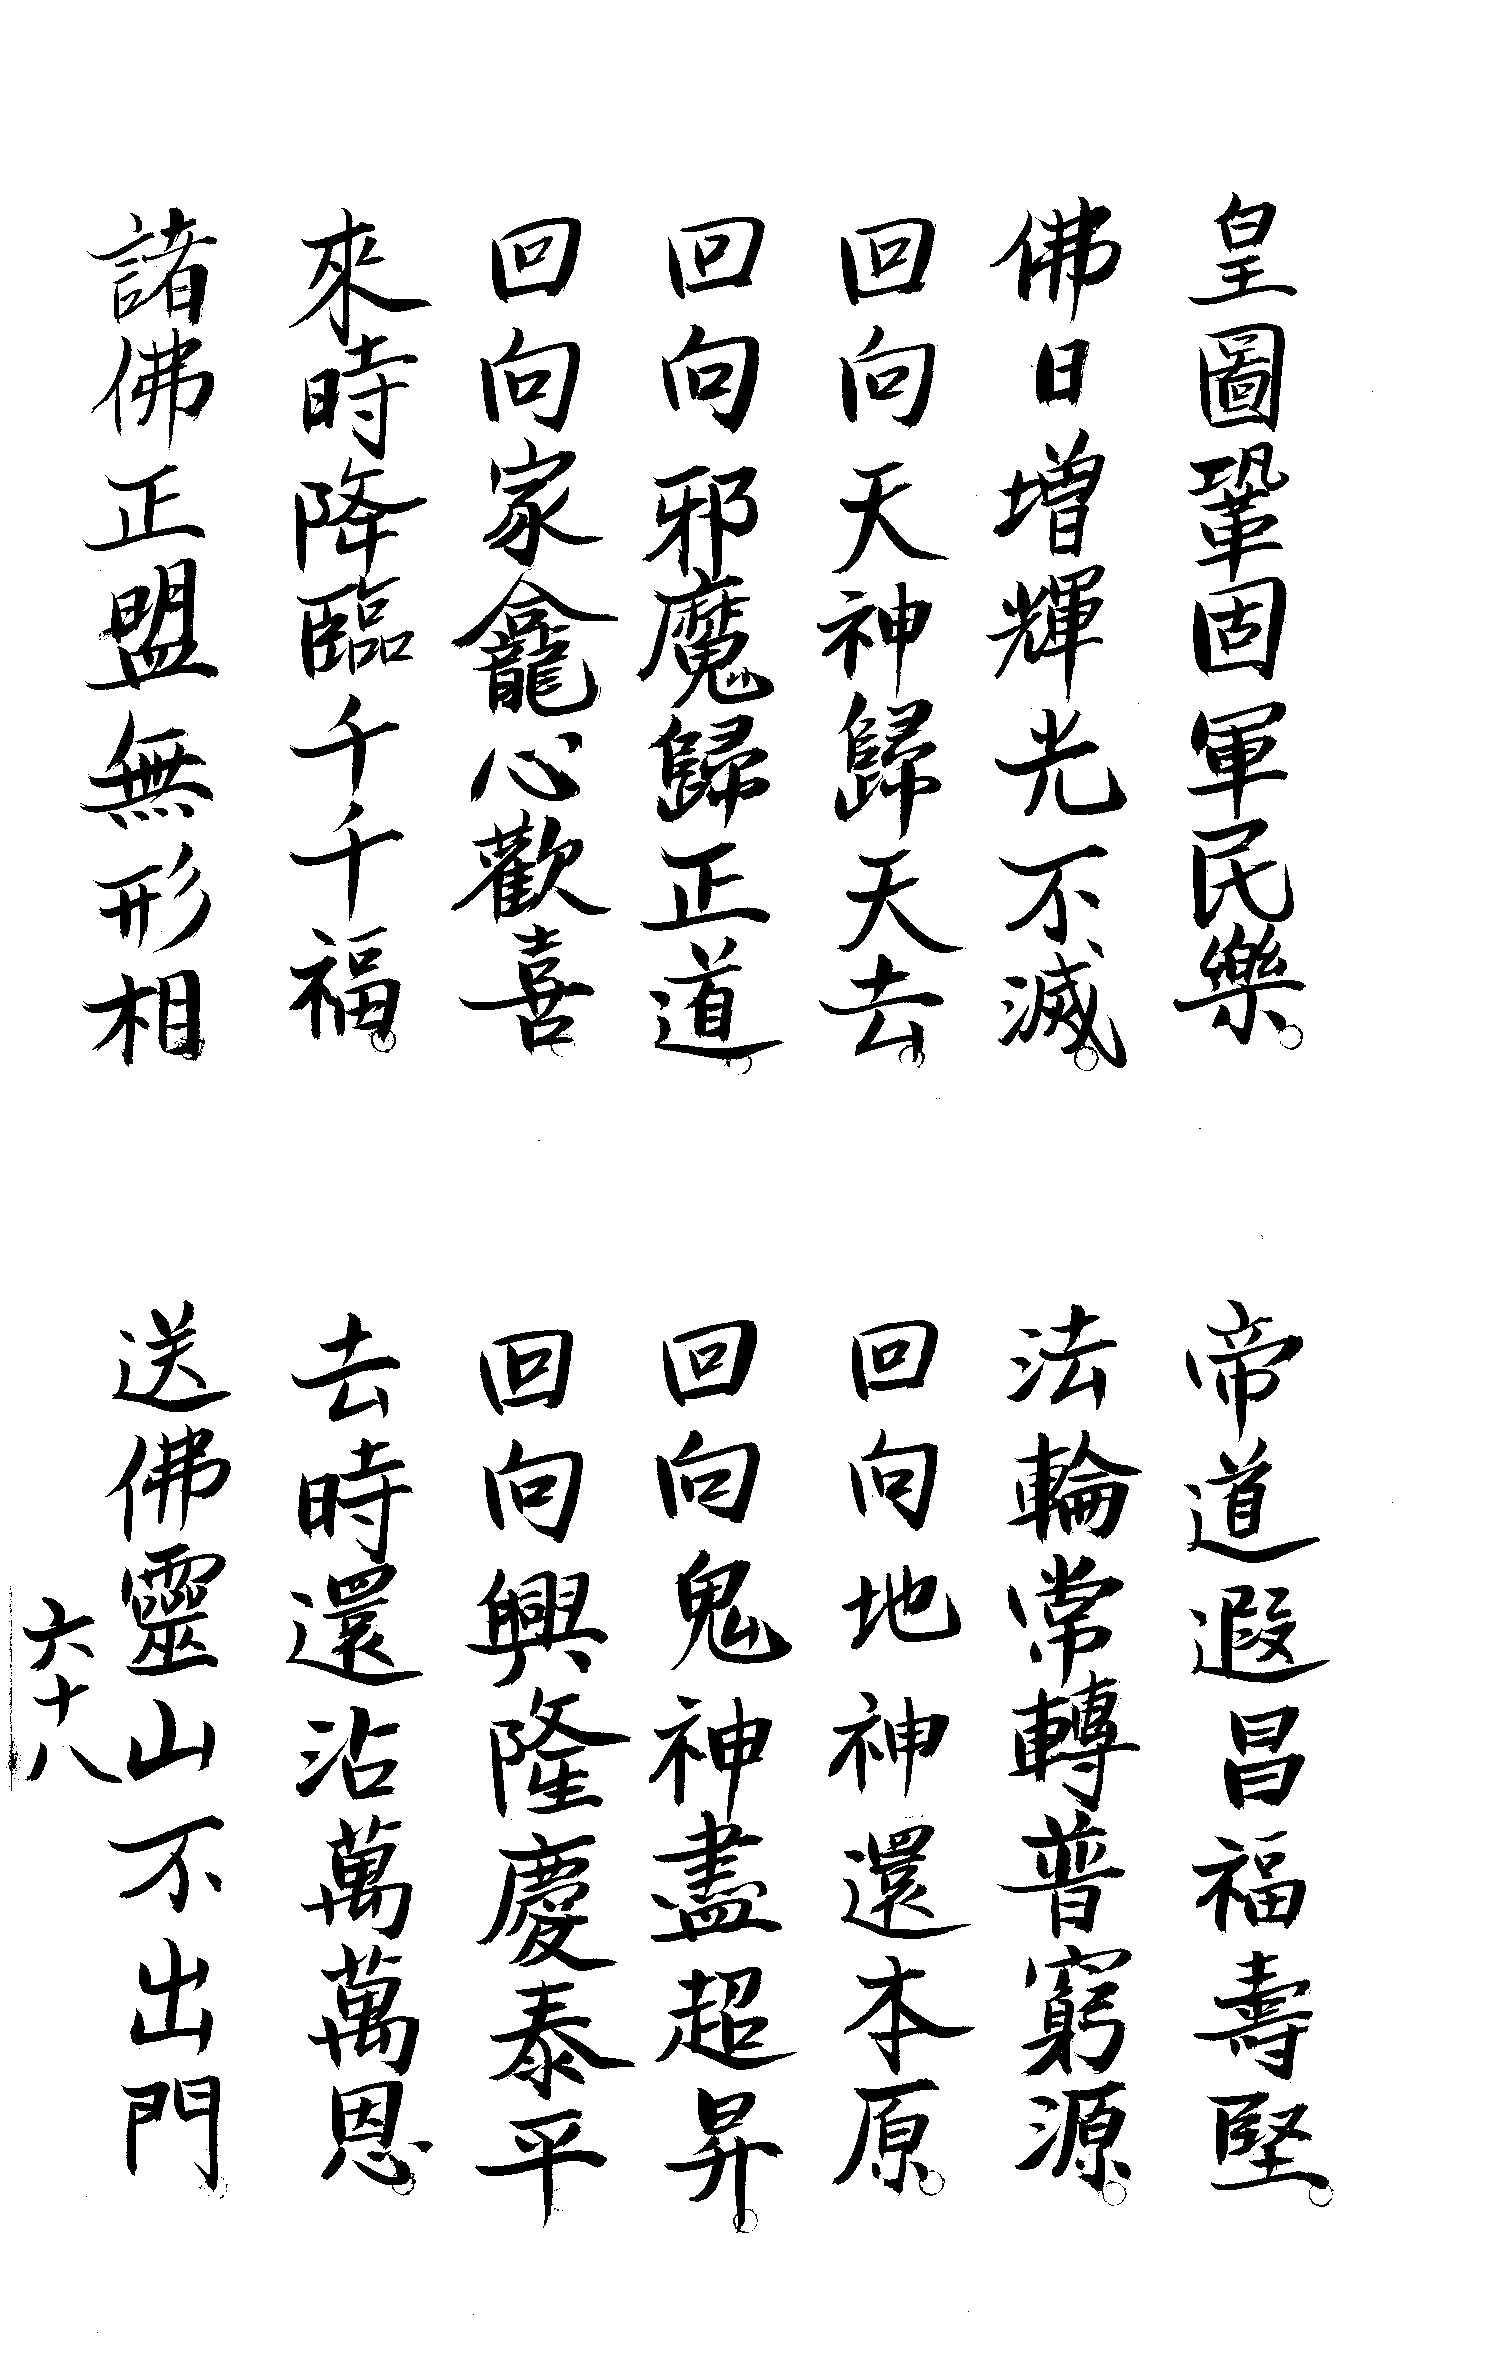 皇圖鞏固軍民樂。帝道遐昌福壽堅。
佛日增輝光不滅。法輪常轉普窮源。
回向天神歸天去。回向地神還本原。
回向邪魔歸正道。回向鬼神盡超昇。
回向家龕心歡喜。回向興隆慶泰平
來時降臨千千福。去時還沾萬萬恩。
諸佛正盟無形相。送佛靈山不出門。
六十八